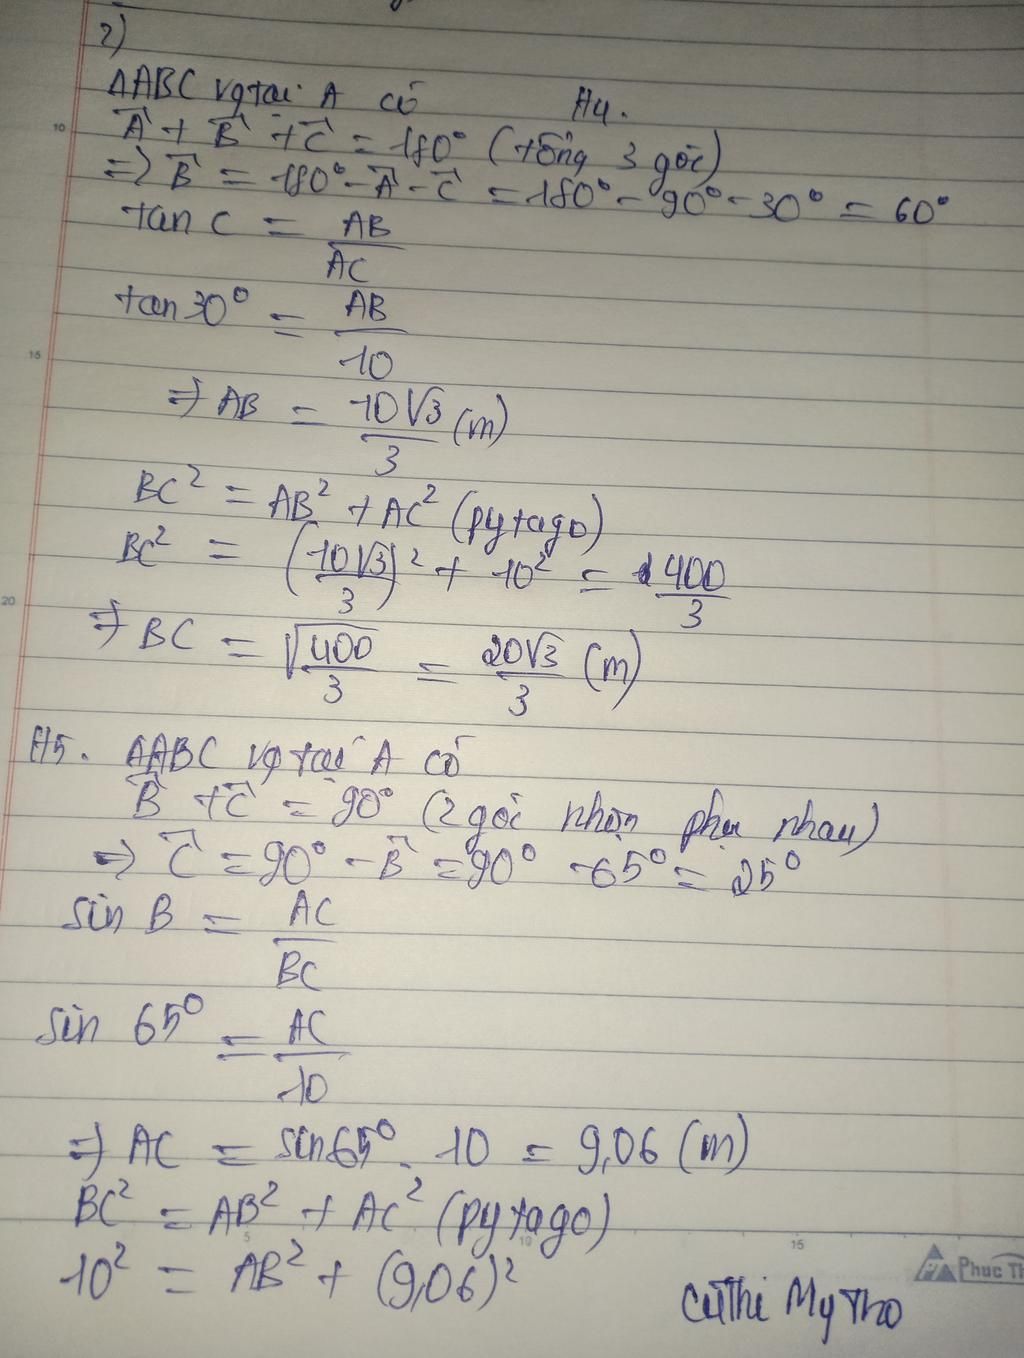 2)
ΔABC vg tại A có H4.
Â + B̂ + Ĉ = 180° (tổng 3 góc)
=> B̂ = 180° - Â - Ĉ = 180° - 90° - 30° = 60°
tan C = AB/AC
tan 30° = AB/10
=> AB = 10√3/3 (m)
BC² = AB² + AC² (pytago)
BC² = (10√3/3)² + 10² = 400/3
=> BC = √(400/3) = 20√3/3 (m)
H5. ΔABC vg tại A có
B̂ + Ĉ = 90° (2 góc nhọn phụ nhau)
=> Ĉ = 90° - B̂ = 90° - 65° = 25°
sin B = AC/BC
sin 65° = AC/10
=> AC = sin65° . 10 = 9,06 (m)
BC² = AB² + AC² (pytago)
10² = AB² + (9,06)²
5 10 15
Phuc Th
Cù Thi My Tho
10
15
20